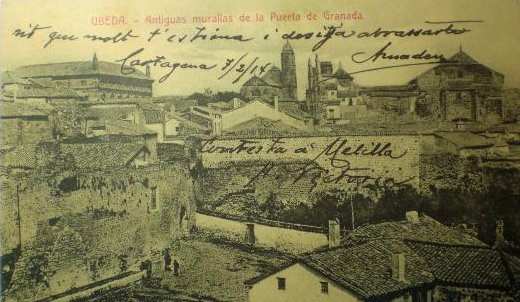 UBEDA. - Antiguas murallas de la Puerta de Granada.
nit que molt t'estima i desitja abrassarte
Amadeu
Cartagena 7/2/14
Contesta á Melilla